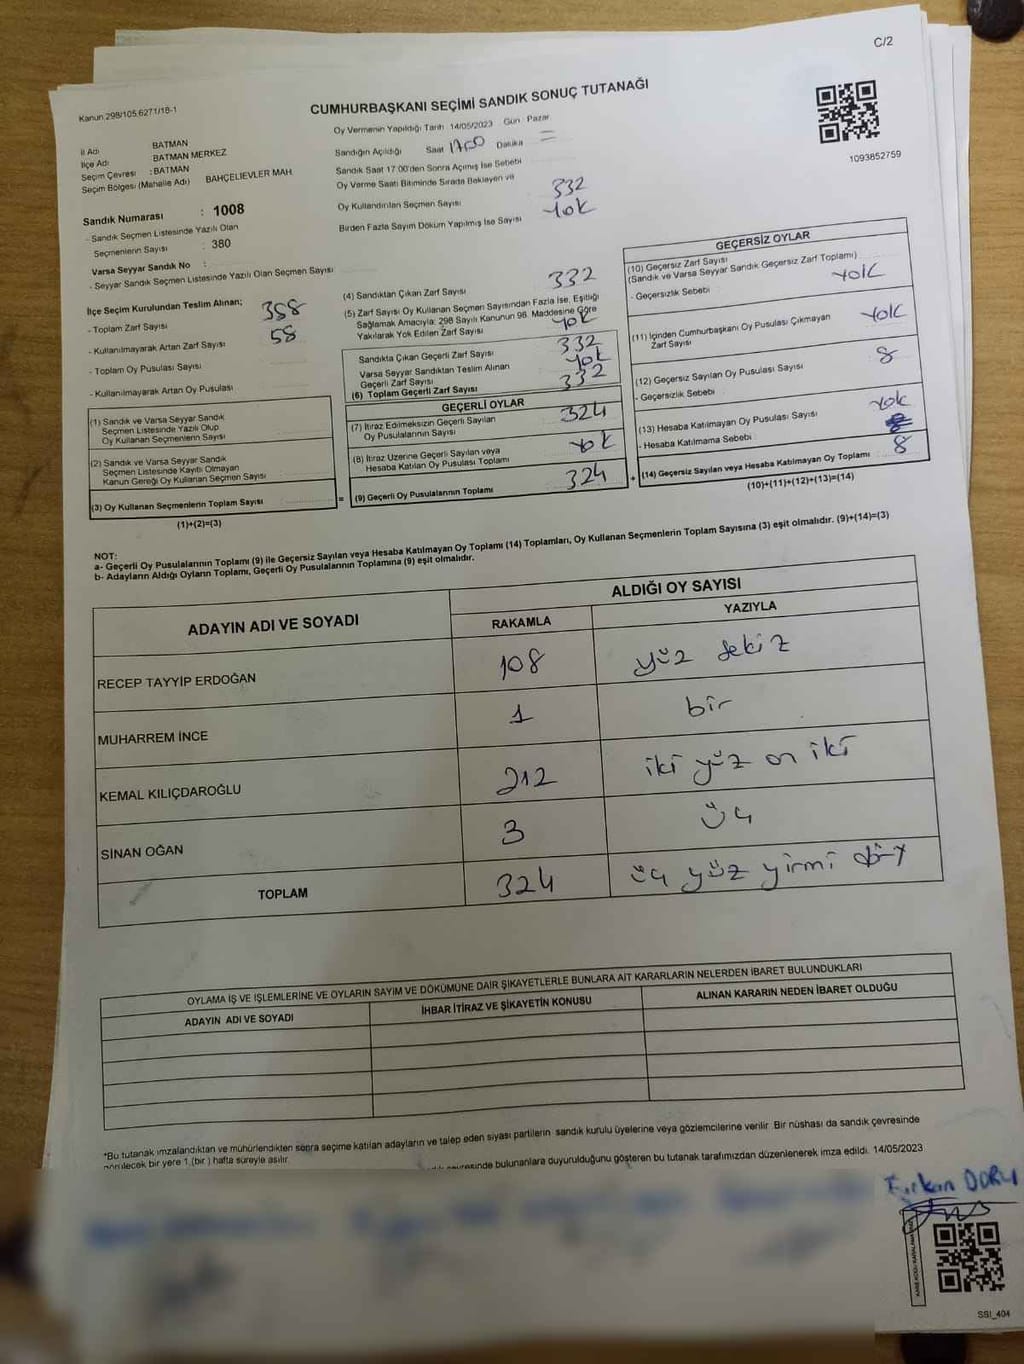 C/2
Kanun 298/105.6271/18-1
CUMHURBAŞKANI SEÇİMİ SANDIK SONUÇ TUTANAĞI
İl Adı BATMAN
İlçe Adı BATMAN MERKEZ
Seçim Çevresi : BATMAN
Seçim Bölgesi (Mahalle Adı) BAHÇELİEVLER MAH.
Sandık Numarası : 1008
- Sandık Seçmen Listesinde Yazılı Olan
Seçmenlerin Sayısı : 380
Varsa Seyyar Sandık No :
- Seyyar Sandık Seçmen Listesinde Yazılı Olan Seçmen Sayısı
Oy Vermenin Yapıldığı Tarih 14/05/2023 Gün Pazar
Sandığın Açıldığı Saat 17:00 Dakika =
Sandık Saat 17:00'den Sonra Açımış İse Sebebi
Oy Verme Saati Bitiminde Sırada Bekleyen ve
Oy Kullandırılan Seçmen Sayısı 332
Birden Fazla Sayım Döküm Yapılmış İse Sayısı Yok
1093852759
İlçe Seçim Kurulundan Teslim Alınan;
- Toplam Zarf Sayısı 358
- Kullanılmayarak Artan Zarf Sayısı 58
- Toplam Oy Pusulası Sayısı
- Kullanılmayarak Artan Oy Pusulası
(1) Sandık ve Varsa Seyyar Sandık
Seçmen Listesinde Yazılı Olup
Oy Kullanan Seçmenlerin Sayısı
(2) Sandık ve Varsa Seyyar Sandık
Seçmen Listesinde Kayıtlı Olmayan
Kanun Gereği Oy Kullanan Seçmen Sayısı
(3) Oy Kullanan Seçmenlerin Toplam Sayısı =
(1)+(2)=(3)
(4) Sandıktan Çıkan Zarf Sayısı 332
(5) Zarf Sayısı Oy Kullanan Seçmen Sayısından Fazla İse, Eşitliği
Sağlamak Amacıyla; 298 Sayılı Kanunun 98. Maddesine Göre
Yakılarak Yok Edilen Zarf Sayısı Yok
Sandıkta Çıkan Geçerli Zarf Sayısı 332
Varsa Seyyar Sandıktan Teslim Alınan
Geçerli Zarf Sayısı Yok
(6) Toplam Geçerli Zarf Sayısı 332
GEÇERLİ OYLAR
(7) İtiraz Edilmeksizin Geçerli Sayılan
Oy Pusulalarının Sayısı 324
(8) İtiraz Üzerine Geçerli Sayılan veya
Hesaba Katılan Oy Pusulası Toplamı Yok
(9) Geçerli Oy Pusulalarının Toplamı 324 +
GEÇERSİZ OYLAR
(10) Geçersiz Zarf Sayısı
(Sandık ve Varsa Seyyar Sandık Geçersiz Zarf Toplamı) Yok
- Geçersizlik Sebebi
(11) İçinden Cumhurbaşkanı Oy Pusulası Çıkmayan
Zarf Sayısı Yok
(12) Geçersiz Sayılan Oy Pusulası Sayısı 8
- Geçersizlik Sebebi
(13) Hesaba Katılmayan Oy Pusulası Sayısı Yok
- Hesaba Katılmama Sebebi
(14) Geçersiz Sayılan veya Hesaba Katılmayan Oy Toplamı 8
(10)+(11)+(12)+(13)=(14)
NOT:
a- Geçerli Oy Pusulalarının Toplamı (9) ile Geçersiz Sayılan veya Hesaba Katılmayan Oy Toplamı (14) Toplamları, Oy Kullanan Seçmenlerin Toplam Sayısına (3) eşit olmalıdır. (9)+(14)=(3)
b- Adayların Aldığı Oyların Toplamı, Geçerli Oy Pusulalarının Toplamına (9) eşit olmalıdır.
ADAYIN ADI VE SOYADI
ALDIĞI OY SAYISI
RAKAMLA YAZIYLA
RECEP TAYYİP ERDOĞAN 108 yüz sekiz
MUHARREM İNCE 1 bir
KEMAL KILIÇDAROĞLU 212 iki yüz on iki
SİNAN OĞAN 3 üç
TOPLAM 324 üç yüz yirmi dört
OYLAMA İŞ VE İŞLEMLERİNE VE OYLARIN SAYIM VE DÖKÜMÜNE DAİR ŞİKAYETLERLE BUNLARA AİT KARARLARIN NELERDEN İBARET BULUNDUKLARI
ADAYIN ADI VE SOYADI İHBAR İTİRAZ VE ŞİKAYETİN KONUSU ALINAN KARARIN NEDEN İBARET OLDUĞU
*Bu tutanak imzalandıktan ve mühürlendikten sonra seçime katılan adayların ve talep eden siyasi partilerin sandık kurulu üyelerine veya gözlemcilerine verilir. Bir nüshası da sandık çevresinde
görülecek bir yere 1 (bir) hafta süreyle asılır.
bulunanlara duyurulduğunu gösteren bu tutanak tarafımızdan düzenlenerek imza edildi. 14/05/2023
SSI_404